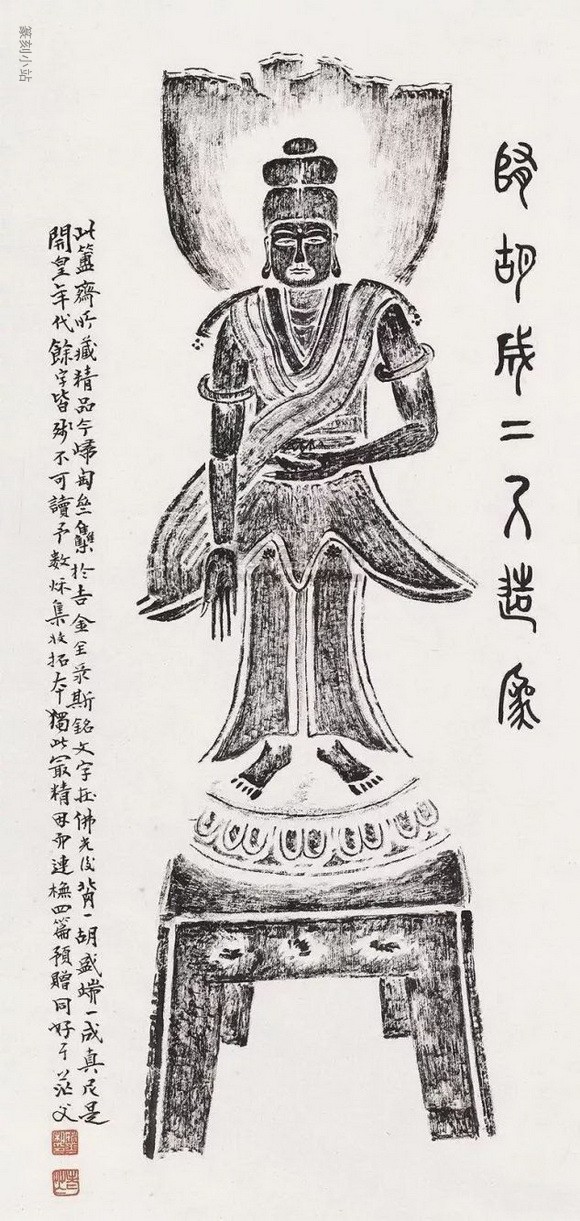 胡成二人造像
此簠齋所藏精品今歸匋集於吉金全录斯銘文字在佛光後背一胡盛端一成真尼是
開皇年代餘字皆殘不可讀予數秌集收拓本獨此最精因而連橅四篇預贈同好茫父
篆刻小站